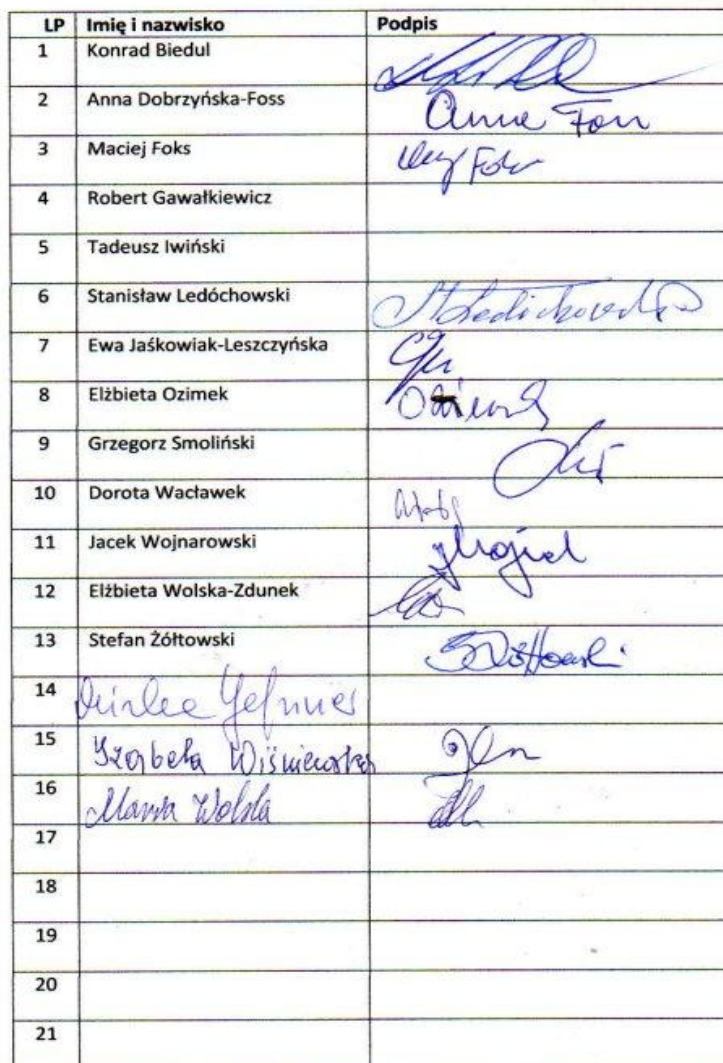 LP Imię i nazwisko Podpis
1 Konrad Biedul
2 Anna Dobrzyńska-Foss Anna Foss
3 Maciej Foks Foks
4 Robert Gawałkiewicz
5 Tadeusz Iwiński
6 Stanisław Ledóchowski StLedóchowski
7 Ewa Jaśkowiak-Leszczyńska
8 Elżbieta Ozimek Ozimek
9 Grzegorz Smoliński
10 Dorota Wacławek
11 Jacek Wojnarowski
12 Elżbieta Wolska-Zdunek
13 Stefan Żółtowski SŻółtowski
14
15 Izabela Wiśniewska
16 Maria Wolska
17
18
19
20
21